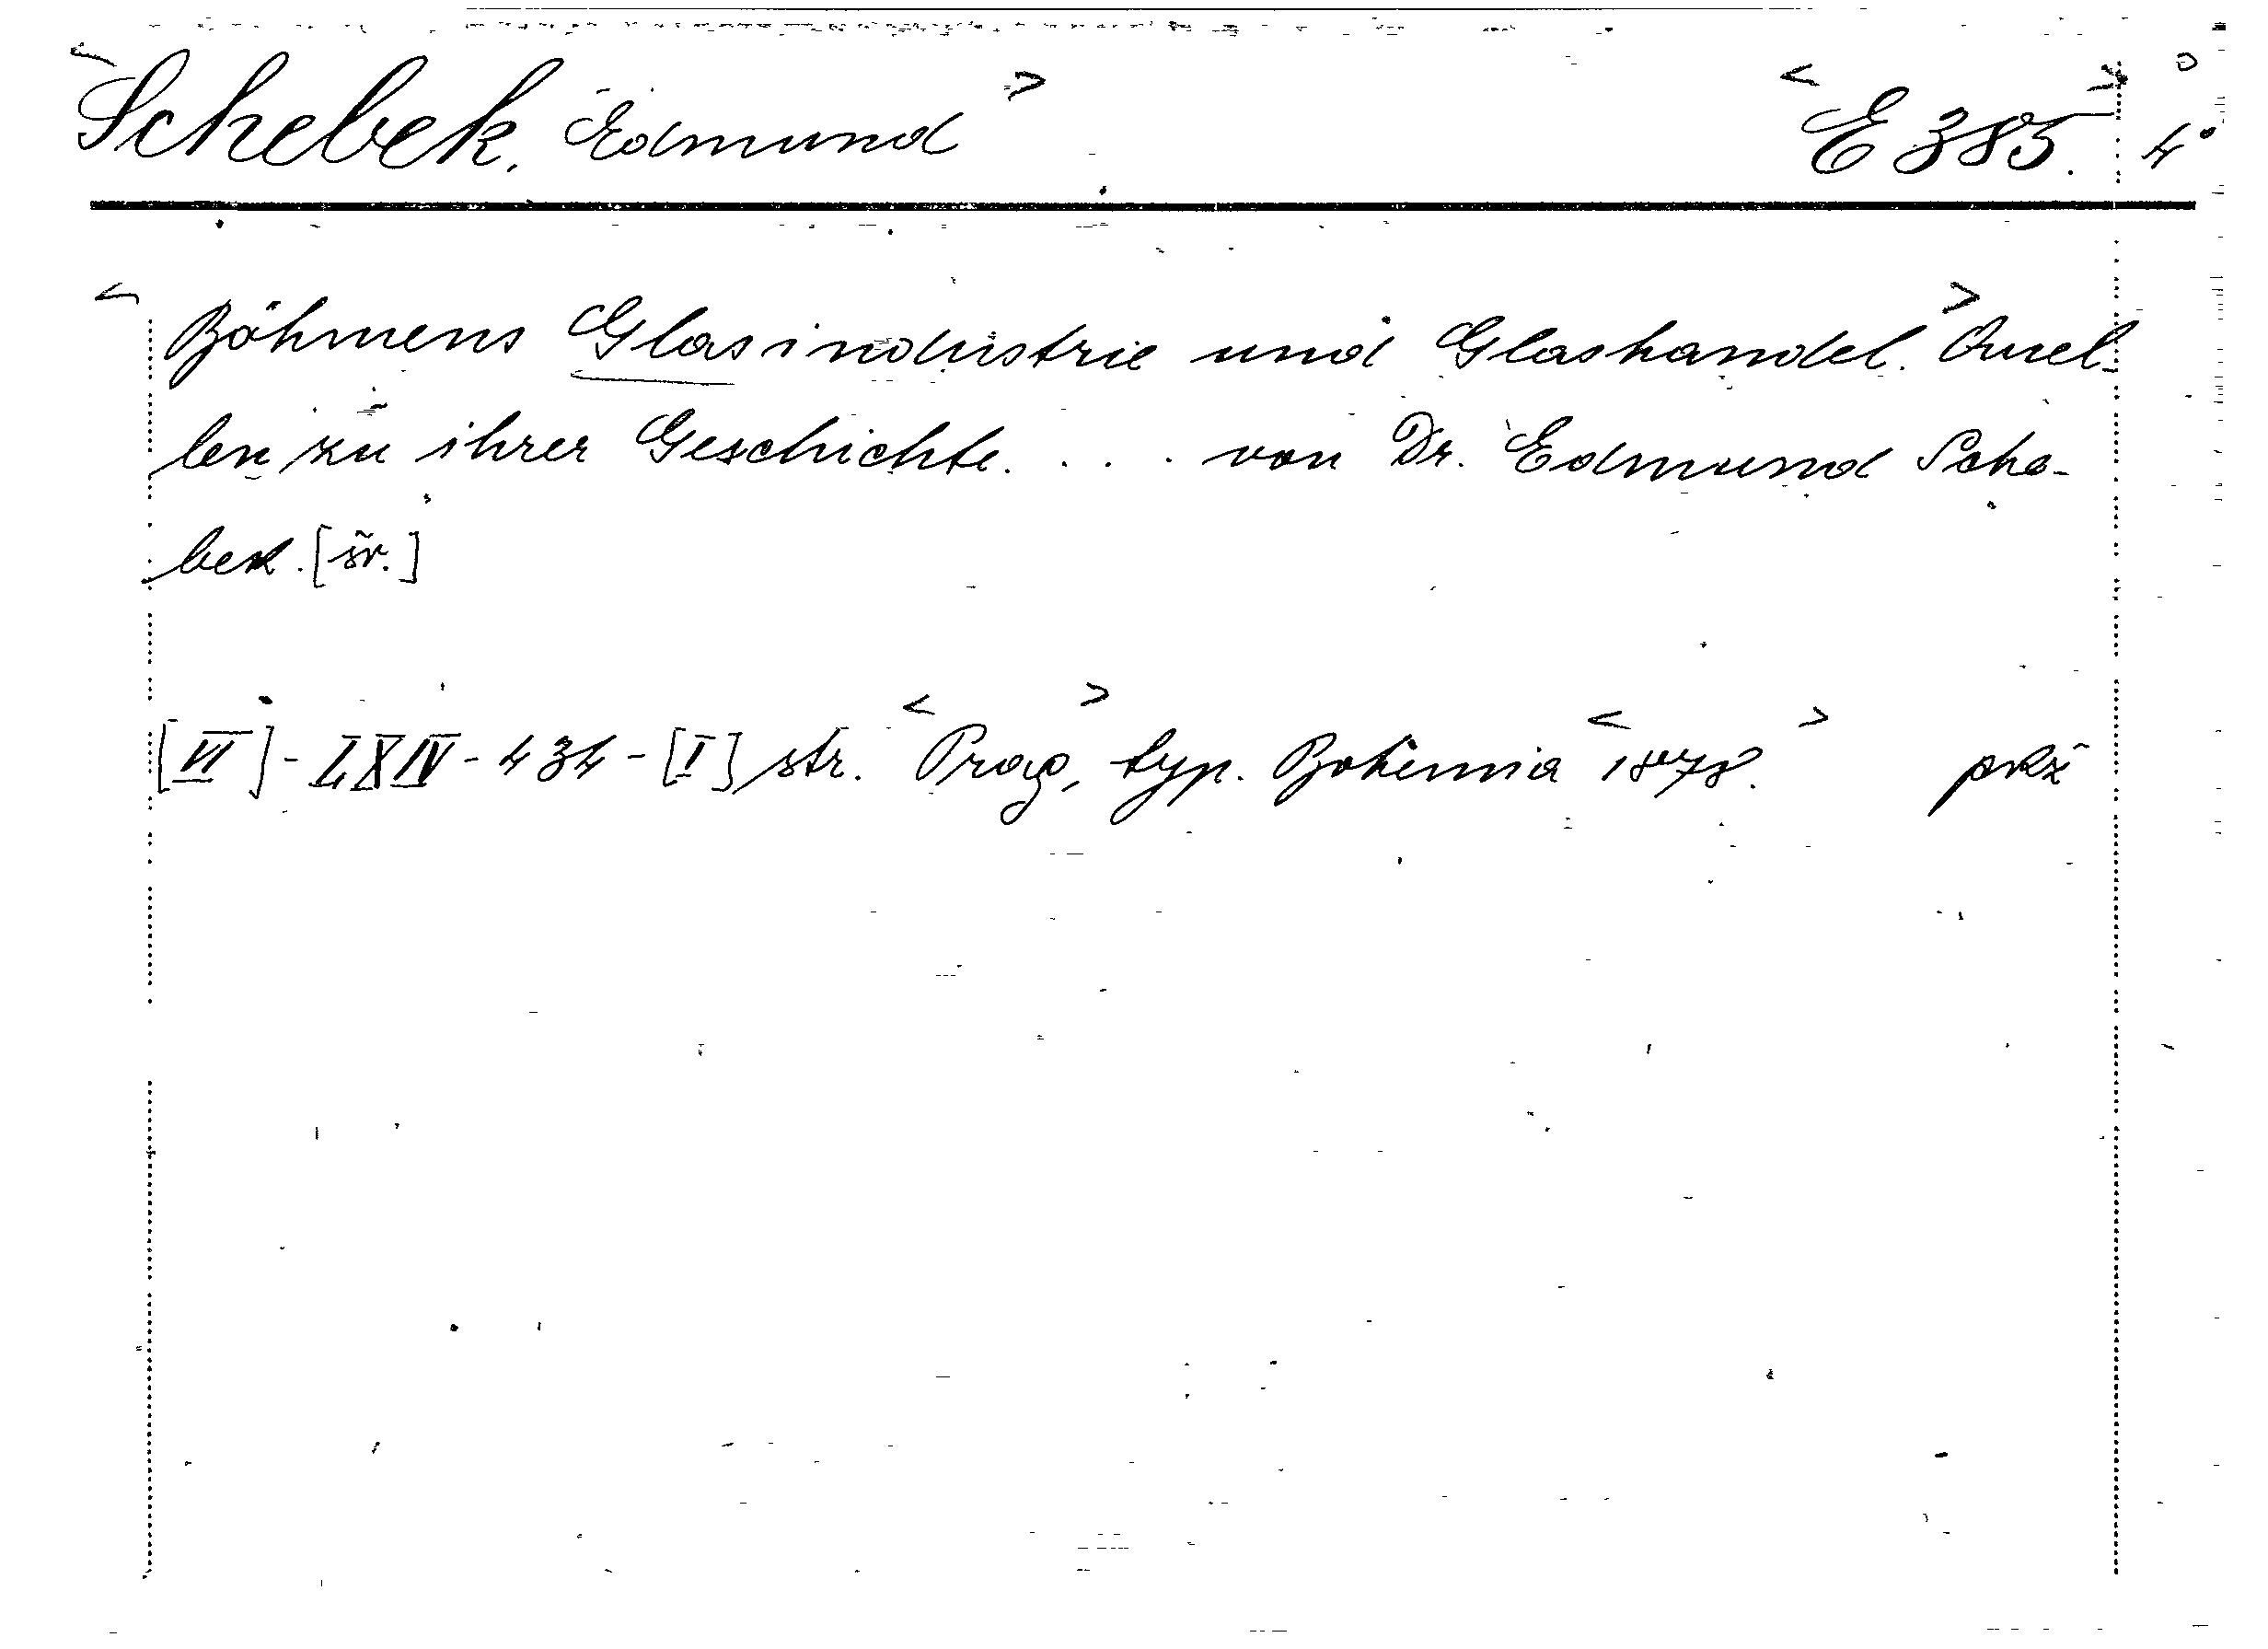 <Schebek, Edmund> <E 385.> 4°
<Böhmens Glasindustrie und Glashandel.> Quel-
len zu ihrer Geschichte. . . . von Dr. Edmund Sche-
bek. [šr.]
[VI] - LXIV - 434 - [I] str. <Prag,> typ. Bohemia <1878.> pkž